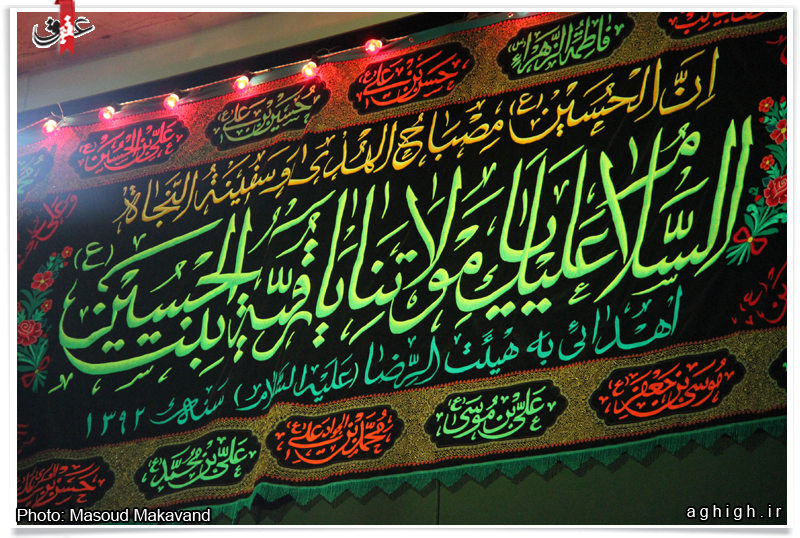 عقیق
فاطمة الزهراء (س) حسن بن علی (ع) حسین بن علی (ع) علی بن الحسین (ع)
ان الحسین (ع) مصباح الهدی و سفینة النجاة
السلام علیک یا مولاتنا یا رقیة بنت الحسین (ع)
اهدائی به هیئت الرضا (علیه السلام) سنه ۱۳۹۲
موسی بن جعفر (ع) علی بن موسی (ع) محمد بن علی علی بن محمد (ع)
Photo: Masoud Makavand
aghigh.ir